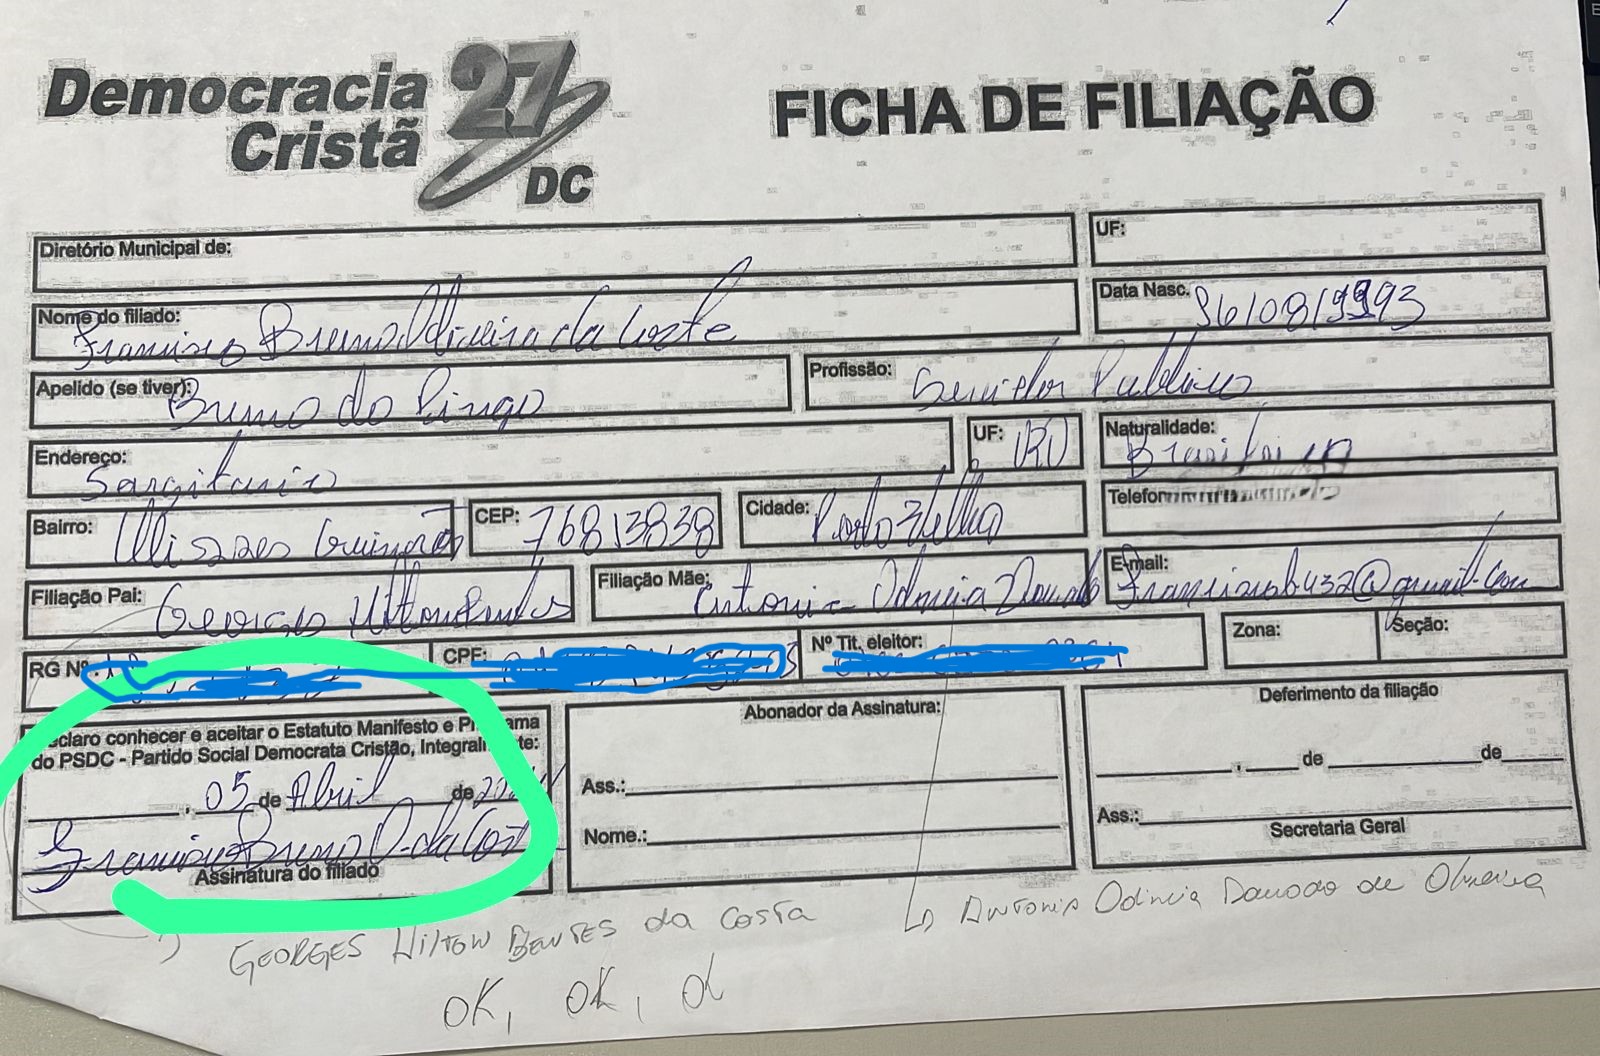 Democracia
Cristã
27
DC
FICHA DE FILIAÇÃO
Diretório Municipal de:
UF:
Nome do filiado: Francisco Bruno Oliveira da Costa
Data Nasc. /08/1993
Apelido (se tiver): Bruno do Pingo
Profissão: Servidor Publico
Endereço: Sargitario
UF: RO
Naturalidade:
Bairro: Ulisses Guimarães
CEP: 76813838
Cidade: Porto Velho
Telefone
Filiação Pai: Georges Hilton Bentes
Filiação Mãe: Antonia Odincia Dourado
E-mail: @gmail.com
RG Nº:
CPF:
Nº Tit. eleitor:
Zona:
Seção:
claro conhecer e aceitar o Estatuto Manifesto e Programa
do PSDC - Partido Social Democrata Cristão, Integralmente:
, 05 de Abril de
Francisco Bruno O. da Cost
Assinatura do filiado
Abonador da Assinatura:
Ass.:
Nome.:
Deferimento da filiação
, de de
Ass.:
Secretaria Geral
GEORGES HILTON BENTES da COSTA
ANTONIA Odincia Dourado de Oliveira
OK, OK,